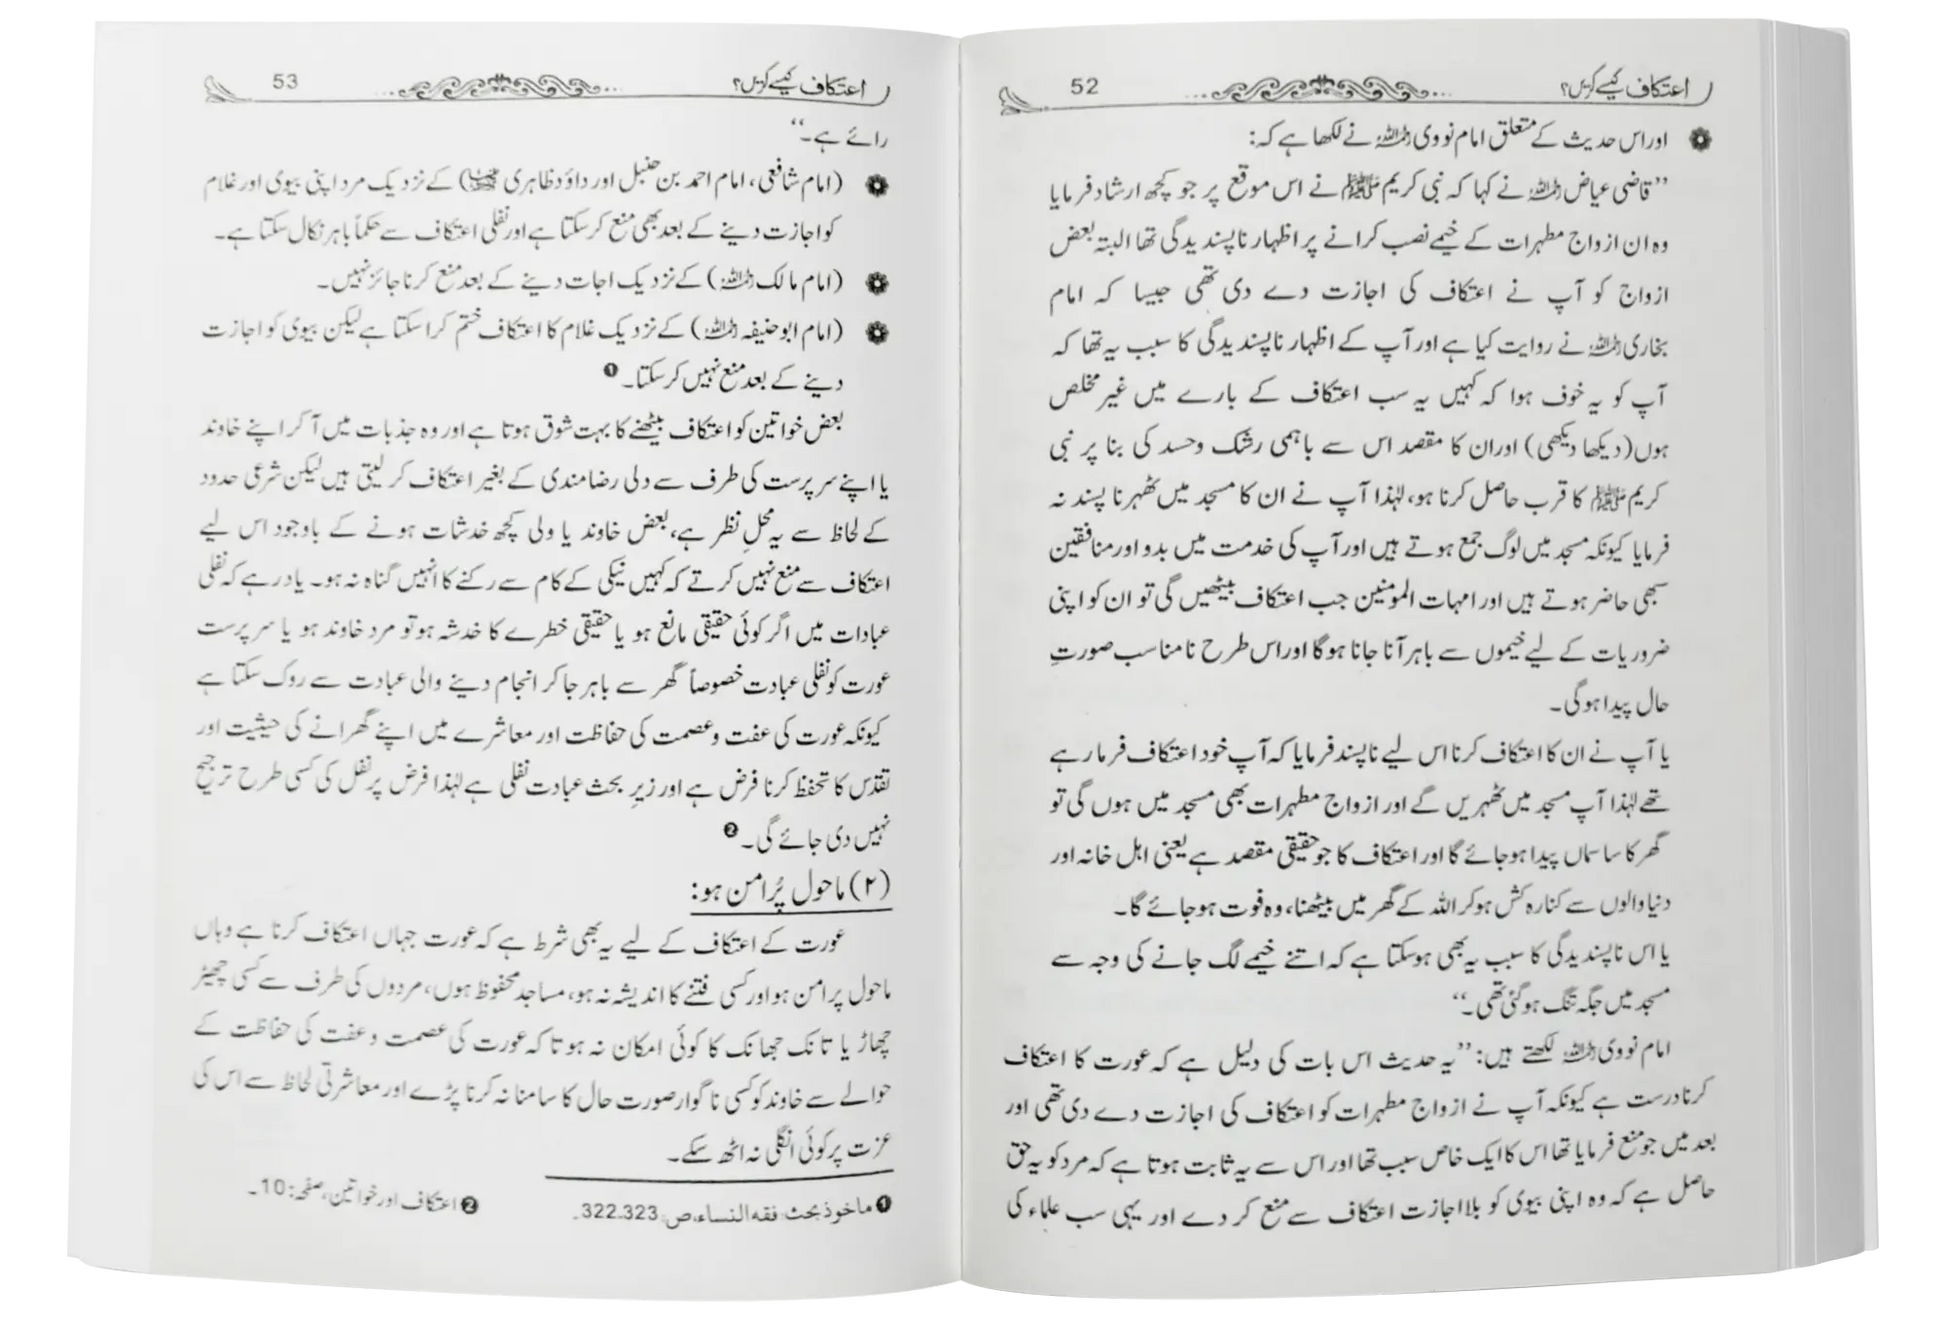 اعتکاف کیسے کریں؟ 52
اور اس حدیث کے متعلق امام نووی رحمہ اللہ نے لکھا ہے کہ:
’’قاضی عیاض رحمہ اللہ نے کہا کہ نبی کریم ﷺ نے اس موقع پر جو کچھ ارشاد فرمایا
وہ ان ازواج مطہرات کے خیمے نصب کرانے پر اظہار ناپسندیدگی تھا البتہ بعض
ازواج کو آپ نے اعتکاف کی اجازت دے دی تھی جیسا کہ امام
بخاری رحمہ اللہ نے روایت کیا ہے اور آپ کے اظہار ناپسندیدگی کا سبب یہ تھا کہ
آپ کو یہ خوف ہوا کہ کہیں یہ سب اعتکاف کے بارے میں غیر مخلص
ہوں (دیکھا دیکھی) اور ان کا مقصد اس سے باہمی رشک وحسد کی بنا پر نبی
کریم ﷺ کا قرب حاصل کرنا ہو، لہٰذا آپ نے ان کا مسجد میں ٹھہرنا پسند نہ
فرمایا کیونکہ مسجد میں لوگ جمع ہوتے ہیں اور آپ کی خدمت میں بدو اور منافقین
سبھی حاضر ہوتے ہیں اور امہات المومنین جب اعتکاف بیٹھیں گی تو ان کو اپنی
ضروریات کے لیے خیموں سے باہر آنا جانا ہوگا اور اس طرح نامناسب صورتِ
حال پیدا ہوگی۔
یا آپ نے ان کا اعتکاف کرنا اس لیے ناپسند فرمایا کہ آپ خود اعتکاف فرما رہے
تھے لہٰذا آپ مسجد میں ٹھہریں گے اور ازواج مطہرات بھی مسجد میں ہوں گی تو
گھر کا سا سماں پیدا ہو جائے گا اور اعتکاف کا جو حقیقی مقصد ہے یعنی اہل خانہ اور
دنیا والوں سے کنارہ کش ہو کر اللہ کے گھر میں بیٹھنا، وہ فوت ہو جائے گا۔
یا اس ناپسندیدگی کا سبب یہ بھی ہوسکتا ہے کہ اتنے خیمے لگ جانے کی وجہ سے
مسجد میں جگہ تنگ ہوگئی تھی۔‘‘
امام نووی رحمہ اللہ لکھتے ہیں: ’’یہ حدیث اس بات کی دلیل ہے کہ عورت کا اعتکاف
کرنا درست ہے کیونکہ آپ نے ازواج مطہرات کو اعتکاف کی اجازت دے دی تھی اور
بعد میں جو منع فرمایا تھا اس کا ایک خاص سبب تھا اور اس سے یہ ثابت ہوتا ہے کہ مرد کو یہ حق
حاصل ہے کہ وہ اپنی بیوی کو بلا اجازت اعتکاف سے منع کر دے اور یہی سب علماء کی
اعتکاف کیسے کریں؟ 53
رائے ہے۔‘‘
(امام شافعی، امام احمد بن حنبل اور داؤد ظاہری رحمہم اللہ) کے نزدیک مرد اپنی بیوی اور غلام
کو اجازت دینے کے بعد بھی منع کرسکتا ہے اور نفلی اعتکاف سے حکماً باہر نکال سکتا ہے۔
(امام مالک رحمہ اللہ) کے نزدیک اجات دینے کے بعد منع کرنا جائز نہیں۔
(امام ابوحنیفہ رحمہ اللہ) کے نزدیک غلام کا اعتکاف ختم کراسکتا ہے لیکن بیوی کو اجازت
دینے کے بعد منع نہیں کرسکتا۔ ❶
بعض خواتین کو اعتکاف بیٹھنے کا بہت شوق ہوتا ہے اور وہ جذبات میں آ کر اپنے خاوند
یا اپنے سرپرست کی طرف سے دلی رضامندی کے بغیر اعتکاف کرلیتی ہیں لیکن شرعی حدود
کے لحاظ سے یہ محلِ نظر ہے، بعض خاوند یا ولی کچھ خدشات ہونے کے باوجود اس لیے
اعتکاف سے منع نہیں کرتے کہ کہیں نیکی کے کام سے رکنے کا انہیں گناہ نہ ہو۔ یاد رہے کہ نفلی
عبادات میں اگر کوئی حقیقی مانع ہو یا حقیقی خطرے کا خدشہ ہو تو مرد خاوند ہو یا سرپرست
عورت کو نفلی عبادت خصوصاً گھر سے باہر جا کر انجام دینے والی عبادت سے روک سکتا ہے
کیونکہ عورت کی عفت وعصمت کی حفاظت اور معاشرے میں اپنے گھرانے کی حیثیت اور
تقدس کا تحفظ کرنا فرض ہے اور زیرِ بحث عبادت نفلی ہے لہٰذا فرض پر نفل کی کسی طرح ترجیح
نہیں دی جائے گی۔ ❷
(۲) ماحول پُرامن ہو:
عورت کے اعتکاف کے لیے یہ بھی شرط ہے کہ عورت جہاں اعتکاف کرنا ہے وہاں
ماحول پرامن ہو اور کسی فتنے کا اندیشہ نہ ہو، مساجد محفوظ ہوں، مردوں کی طرف سے کسی چھیڑ
چھاڑ یا تانک جھانک کا کوئی امکان نہ ہو تا کہ عورت کی عصمت وعفت کی حفاظت کے
حوالے سے خاوند کو کسی ناگوار صورت حال کا سامنا نہ کرنا پڑے اور معاشرتی لحاظ سے اس کی
عزت پر کوئی انگلی نہ اٹھ سکے۔
❶ ماخوذ بحث: فقہ النساء، ص: 322.323۔ ❷ اعتکاف اور خواتین، صفحہ: 10۔